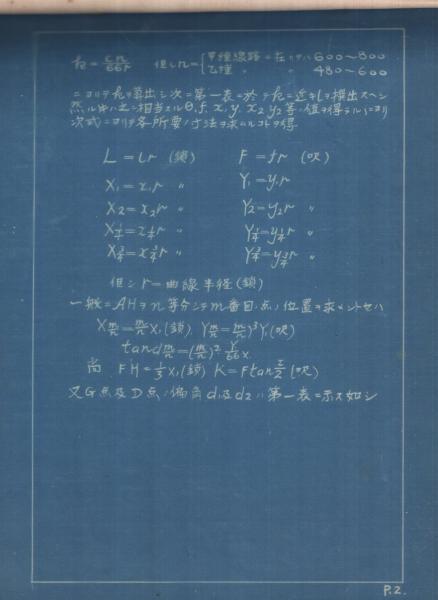 k = cn/66r 但シ n = { 甲種線路ニ在リテハ 600〜800
乙種 〃 480〜600
ニヨリテ k ヲ算出シ次ニ第一表ニ於テ k ニ近キ l ヲ撰出スヘシ
然ル中ハ之ニ相当スル θ, f, x, y, x₂ y₂ 等ノ値ヲ得ラル
次式ニヨリテ各所要ノ寸法ヲ求ムルコトヲ得
L = lr (鎖) F = fr (呎)
X₁ = x₁r 〃 Y₁ = y₁r
X₂ = x₂r 〃 Y₂ = y₂r 〃
X¼ = x¼r 〃 Y¼ = y¼r 〃
X¾ = x¾r 〃 Y¾ = y¾r 〃
但シ r = 曲線半径 (鎖)
一般ニ AH ヲ n 等分シテ m 番目ノ点ノ位置ヲ求メントセハ
Xm/n = m/n X₁ (鎖) Ym/n = (m/n)³Y₁ (呎)
tan dm/n = (m/n)² Y₁/66X₁
尚 FH = 1/3 X₁ (鎖) K = F tan I/2 (呎)
又 G 点及 D 点ノ偏角 d₁ 及 d₂ ハ第一表ニ示ス如シ
P.2.